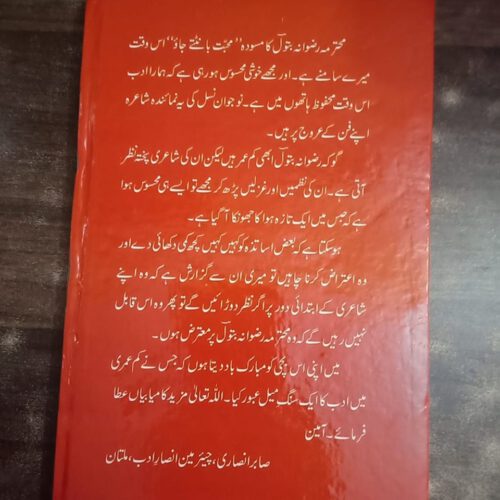 محترمہ رضوانہ بتولؔ کا مسودہ ”محبت بانٹتے جاؤ“ اس وقت
میرے سامنے ہے۔ اور مجھے خوشی محسوس ہو رہی ہے کہ ہمارا ادب
اس وقت محفوظ ہاتھوں میں ہے۔ نوجوان نسل کی یہ نمائندہ شاعرہ
اپنے فن کے عروج پر ہیں۔
گو کہ رضوانہ بتولؔ ابھی کم عمر ہیں لیکن ان کی شاعری پختہ نظر
آتی ہے۔ ان کی نظمیں اور غزلیں پڑھ کر مجھے تو ایسے ہی محسوس ہوا
ہے کہ حبس میں ایک تازہ ہوا کا جھونکا آ گیا ہے۔
ہو سکتا ہے کہ بعض اساتذہ کو کہیں کہیں کچھ کمی دکھائی دے اور
وہ اعتراض کرنا چاہیں تو میری ان سے گزارش ہے کہ وہ اپنے
شاعری کے ابتدائی دور پر اگر نظر دوڑائیں گے تو پھر وہ اس قابل
نہیں رہیں گے کہ وہ محترمہ رضوانہ بتولؔ پر معترض ہوں۔
میں اپنی اس بچی کو مبارک باد دیتا ہوں کہ جس نے کم عمری
میں ادب کا ایک سنگِ میل عبور کیا۔ اللہ تعالیٰ مزید کامیابیاں عطا
فرمائے۔ آمین
صابر انصاری، چیئرمین انصارِ ادب، ملتان